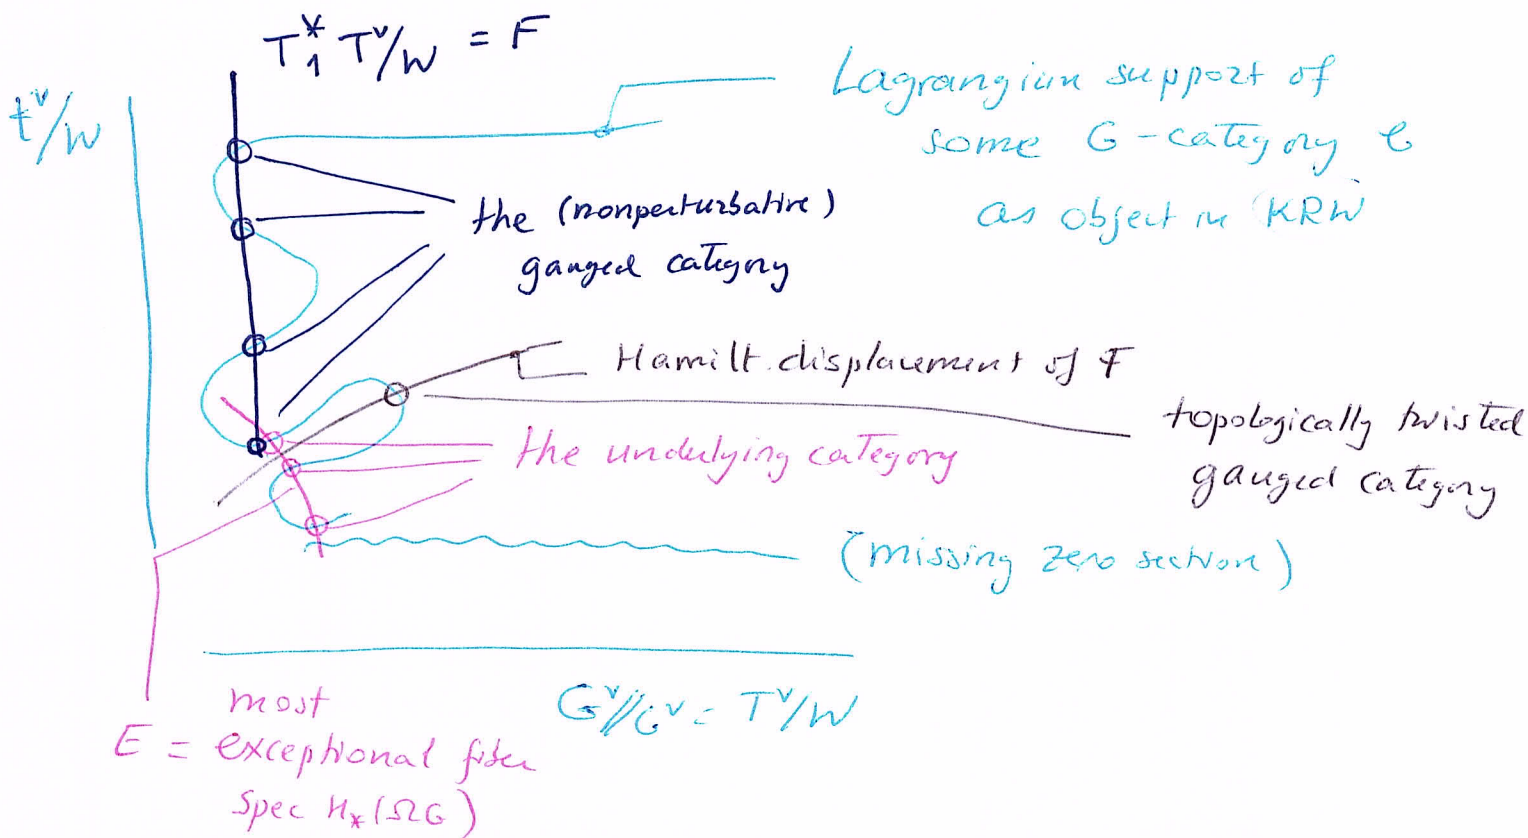 T*₁ Tᵛ/W = F
tᵛ/W
Lagrangian support of
some G-category C
as object in KRW
the (nonperturbative)
gauged category
Hamilt. displacement of F
topologically twisted
gauged category
the underlying category
(missing zero section)
Gᵛ//Gᵛ = Tᵛ/W
most
E = exceptional fiber
spec H_*(ΩG)